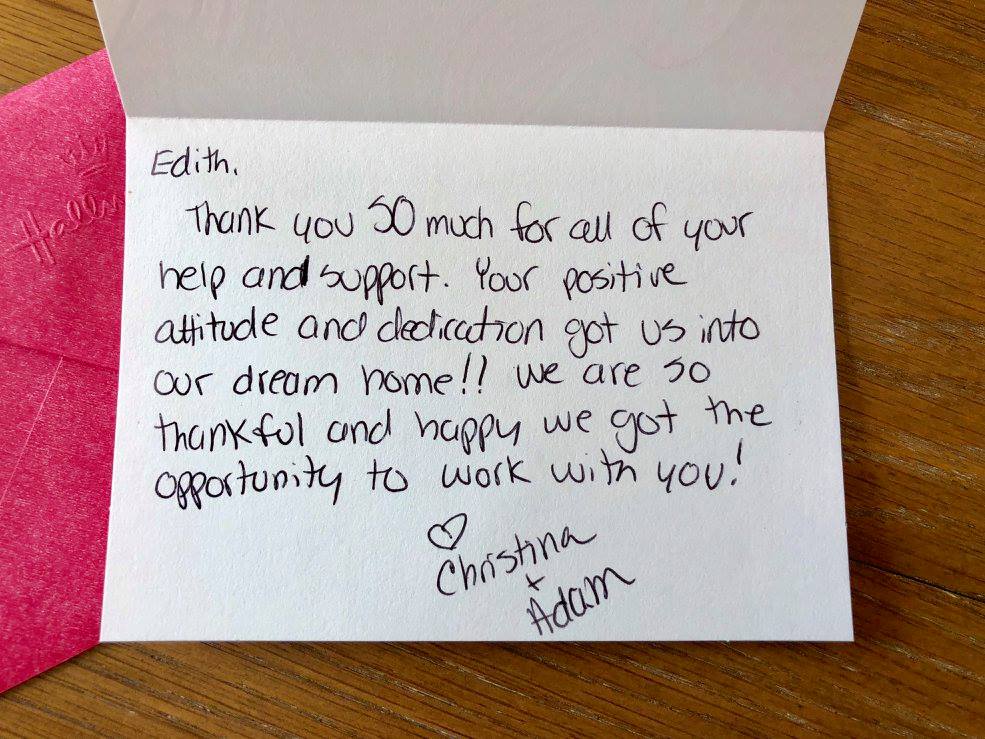 Edith.
Thank you SO much for all of your
help and support. Your positive
attitude and dedication got us into
our dream home!! we are so
thankful and happy we got the
opportunity to work with you!
♡
Christina
+
Adam